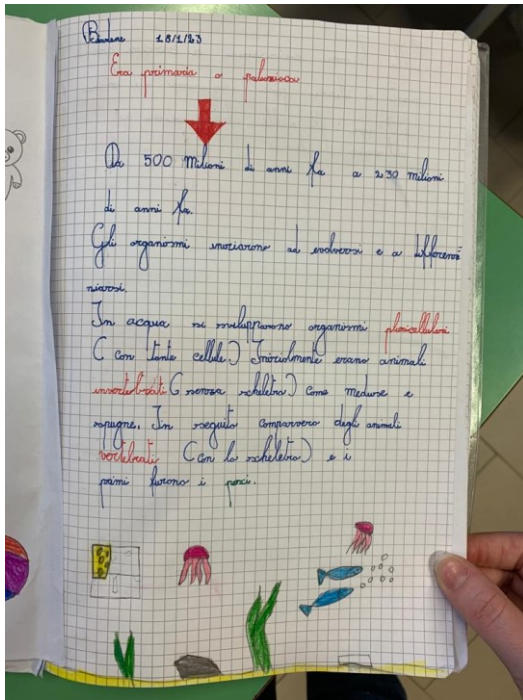 Bondeno 18/1/23
Era primaria o paleozoica
Da 500 milioni di anni fa a 230 milioni
di anni fa.
Gli organismi iniziarono ad evolversi e a differen
ziarsi.
In acqua si svilupparono organismi pluricellulari
( con tante cellule.) Inizialmente erano animali
invertebrati ( senza scheletro) come meduse e
spugne. In seguito comparvero degli animali
vertebrati (con lo scheletro) e i
primi furono i pesci.